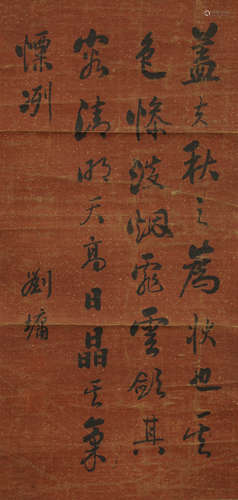 蓋夫秋之為狀也其
色慘淡烟霏雲斂其
容清明天高日晶其氣
慄冽
劉墉